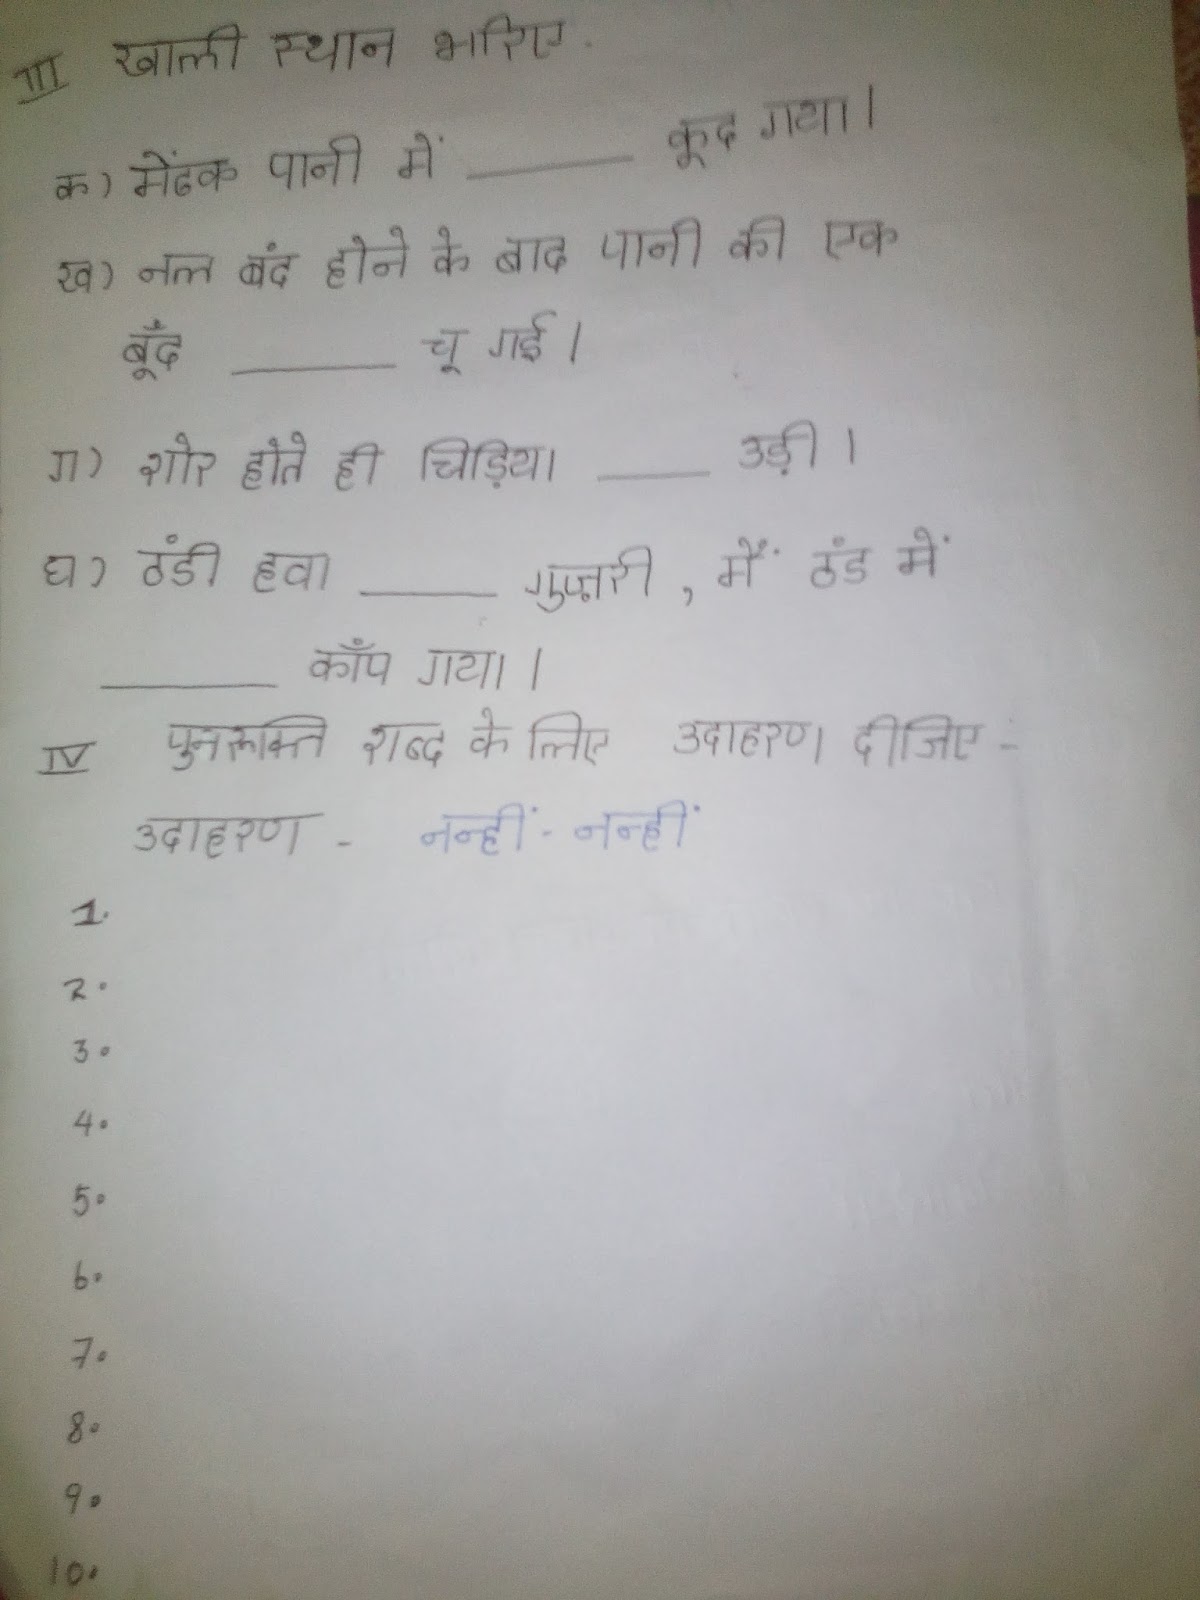 III खाली स्थान भरिए.
क) मेंढक पानी में ______ कूद गया।
ख) नल बंद होने के बाद पानी की एक
बूँद ______ चू गई।
ग) शोर होते ही चिड़िया ____ उड़ी।
घ) ठंडी हवा _____ गुज़री, मैं ठंड में
______ काँप गया।
IV पुनरूक्ति शब्द के लिए उदाहरण दीजिए -
उदाहरण - नन्हीं - नन्हीं
1.
2.
3.
4.
5.
6.
7.
8.
9.
10.